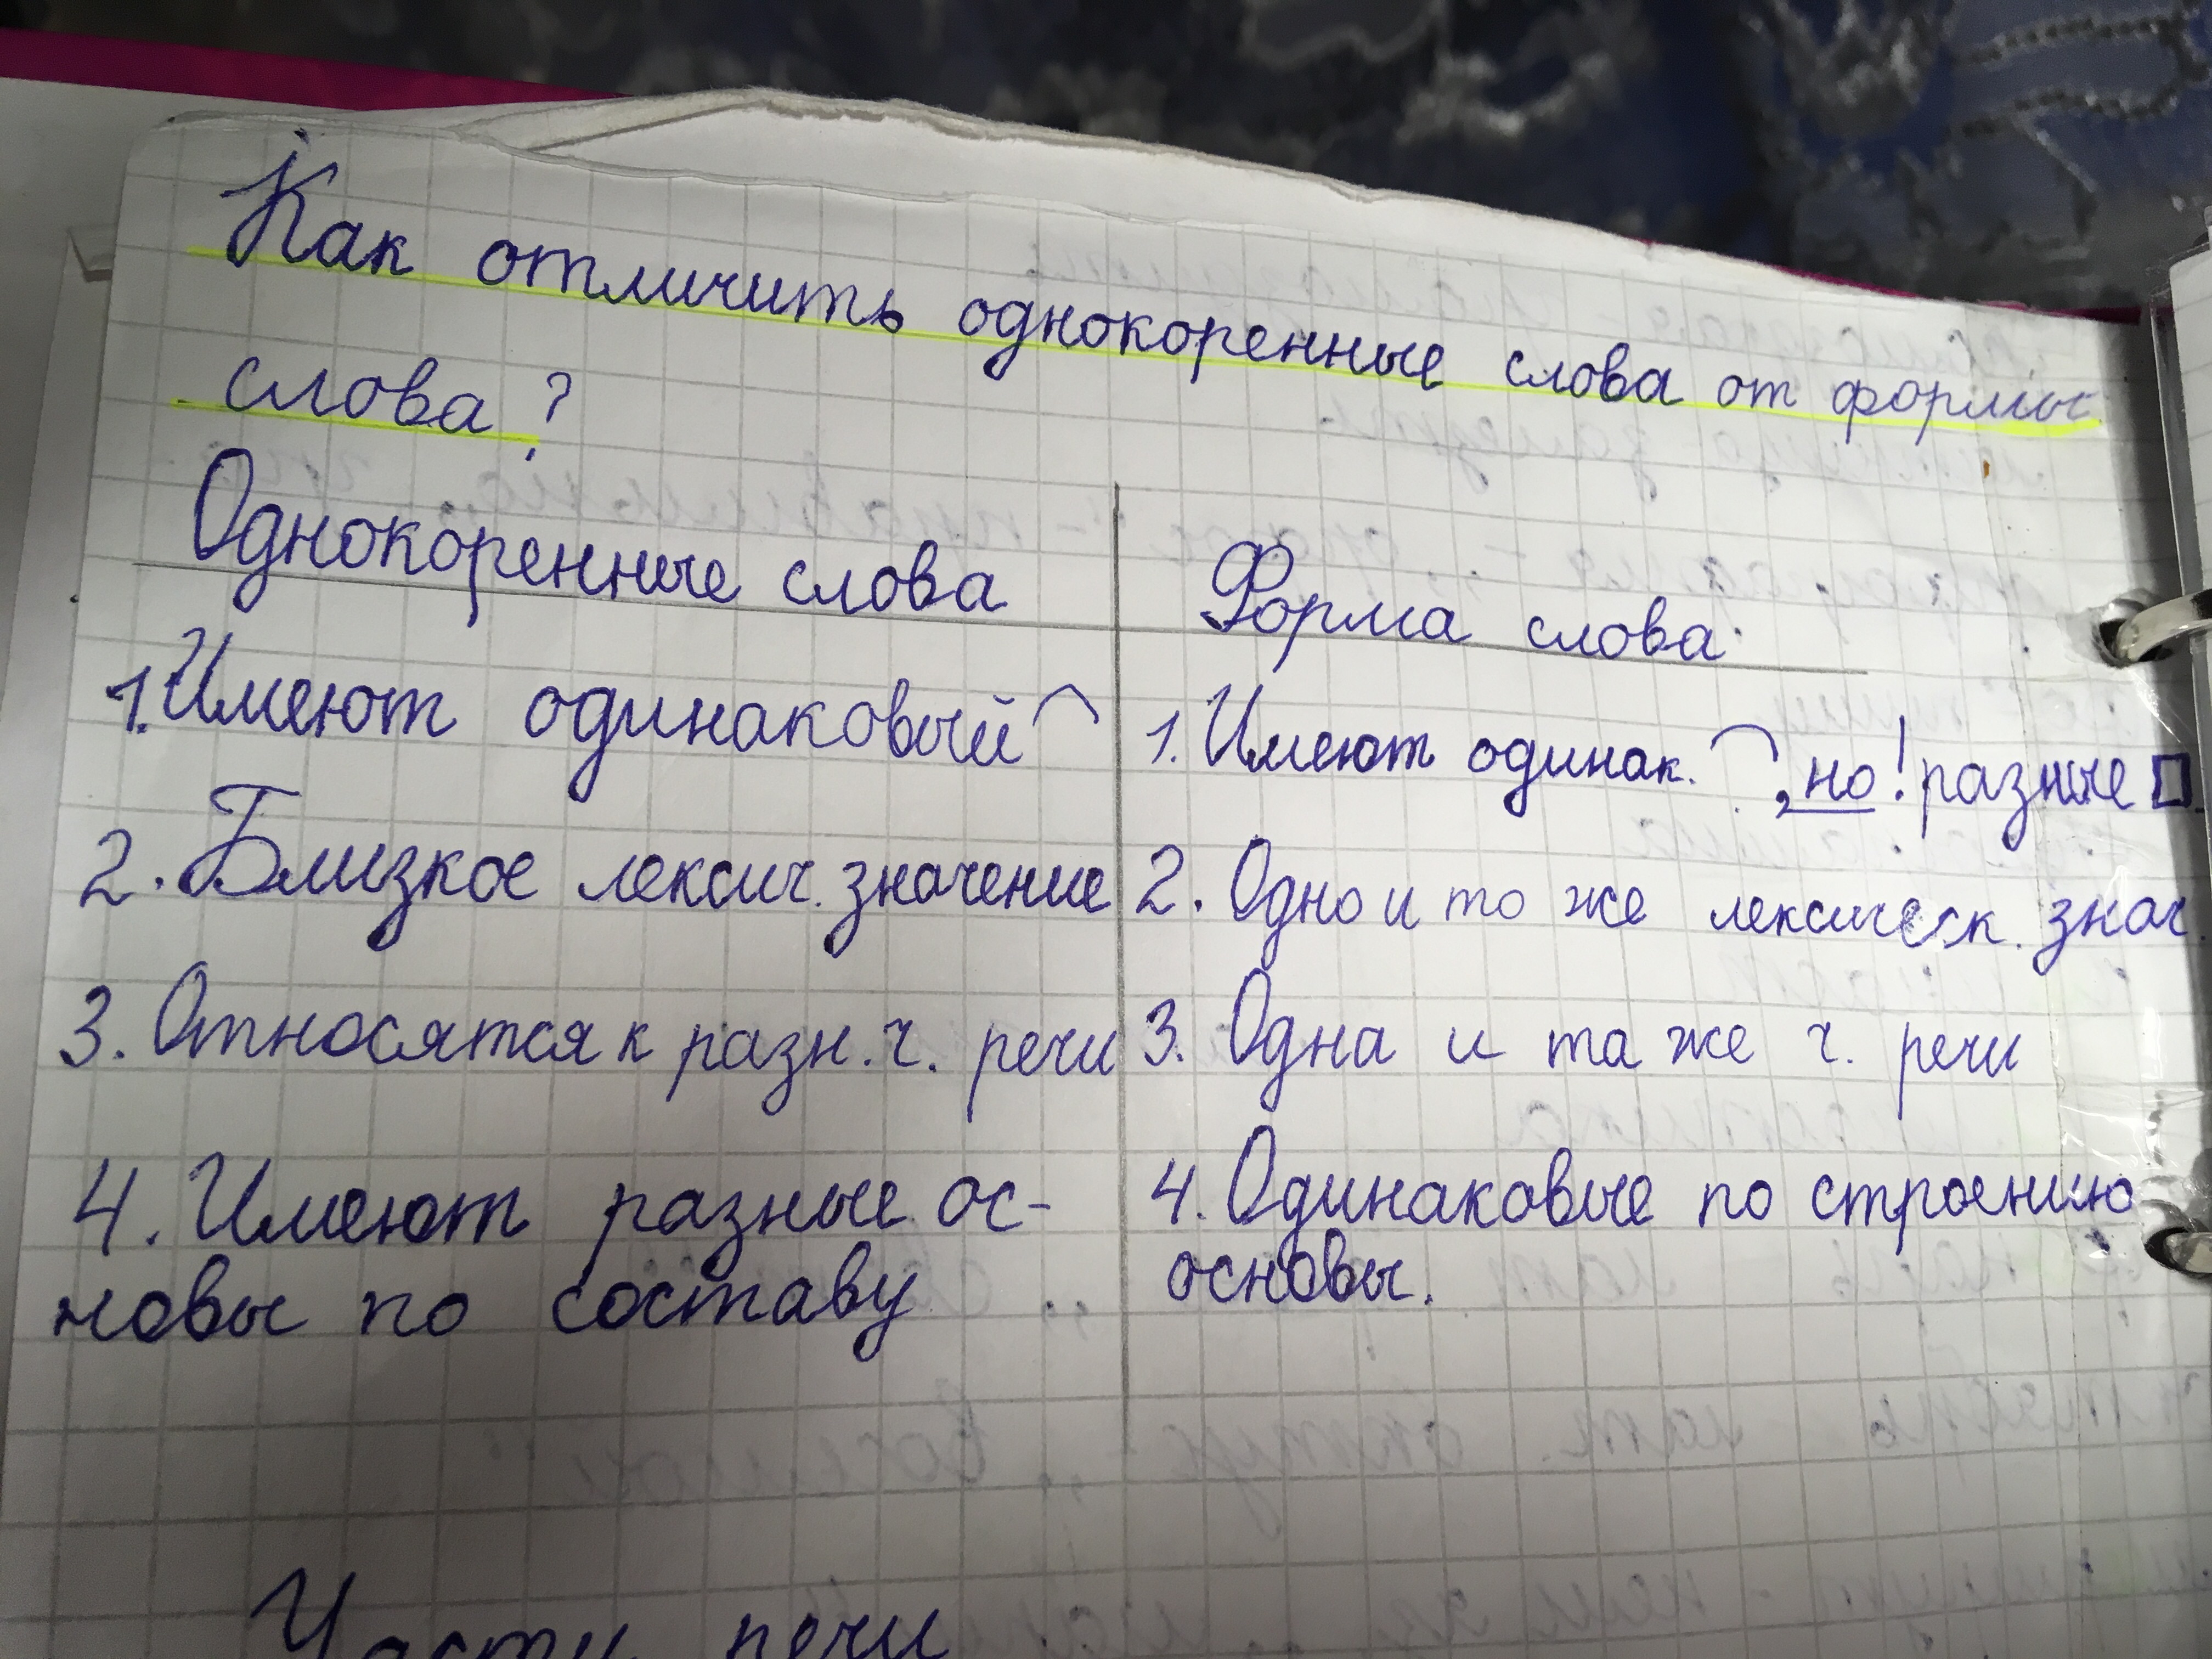 Как отличить однокоренные слова от формы
слова?
Однокоренные слова
1. Имеют одинаковый ⌒
2. Близкое лексич. значение
3. Относятся к разн. ч. речи
4. Имеют разные ос-
новы по составу
Форма слова
1. Имеют одинак. ⌒, но! разные □
2. Одно и то же лексическ. знач
3. Одна и та же ч. речи
4. Одинаковые по строению
основы.
Части речи